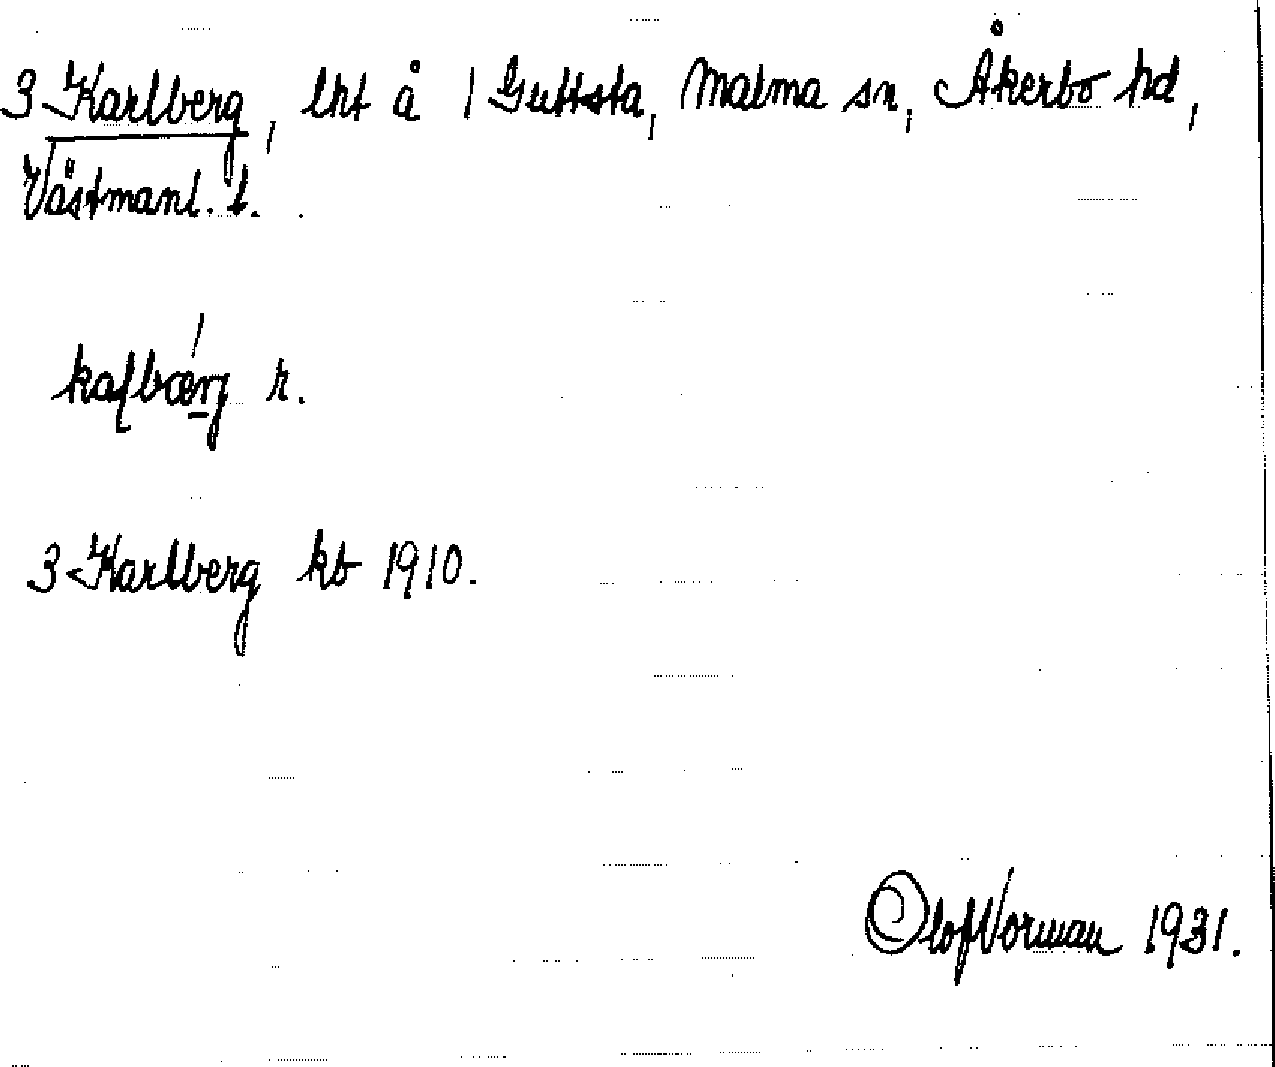 3 Karlberg, lht å 1 Guttsta, Malma sn, Åkerbo hd,
Västmanl. l.
kaſbærj r.
3 Karlberg kb 1910.
Olof Norman 1931.